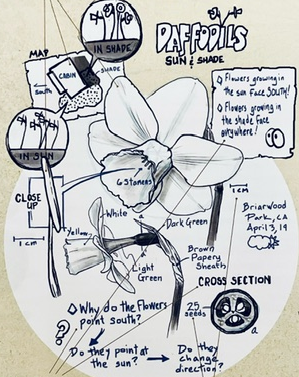 DAFFODILS
SUN & SHADE
IN SHADE
MAP
CABIN
SHADE
South
Flowers growing in
the sun face SOUTH!!
Flowers growing in
the shade face
anywhere!
IN SUN
CLOSE
UP
1 cm
6 Stamens
1 cm
White
Dark Green
Yellow
Light
Green
Brown
Papery
Sheath
Briarwood
Park, CA
April 3, 19
CROSS SECTION
25
seeds
a
a
Why do the flowers
point south?
?
Do they point at
the sun?
Do they
change
direction?